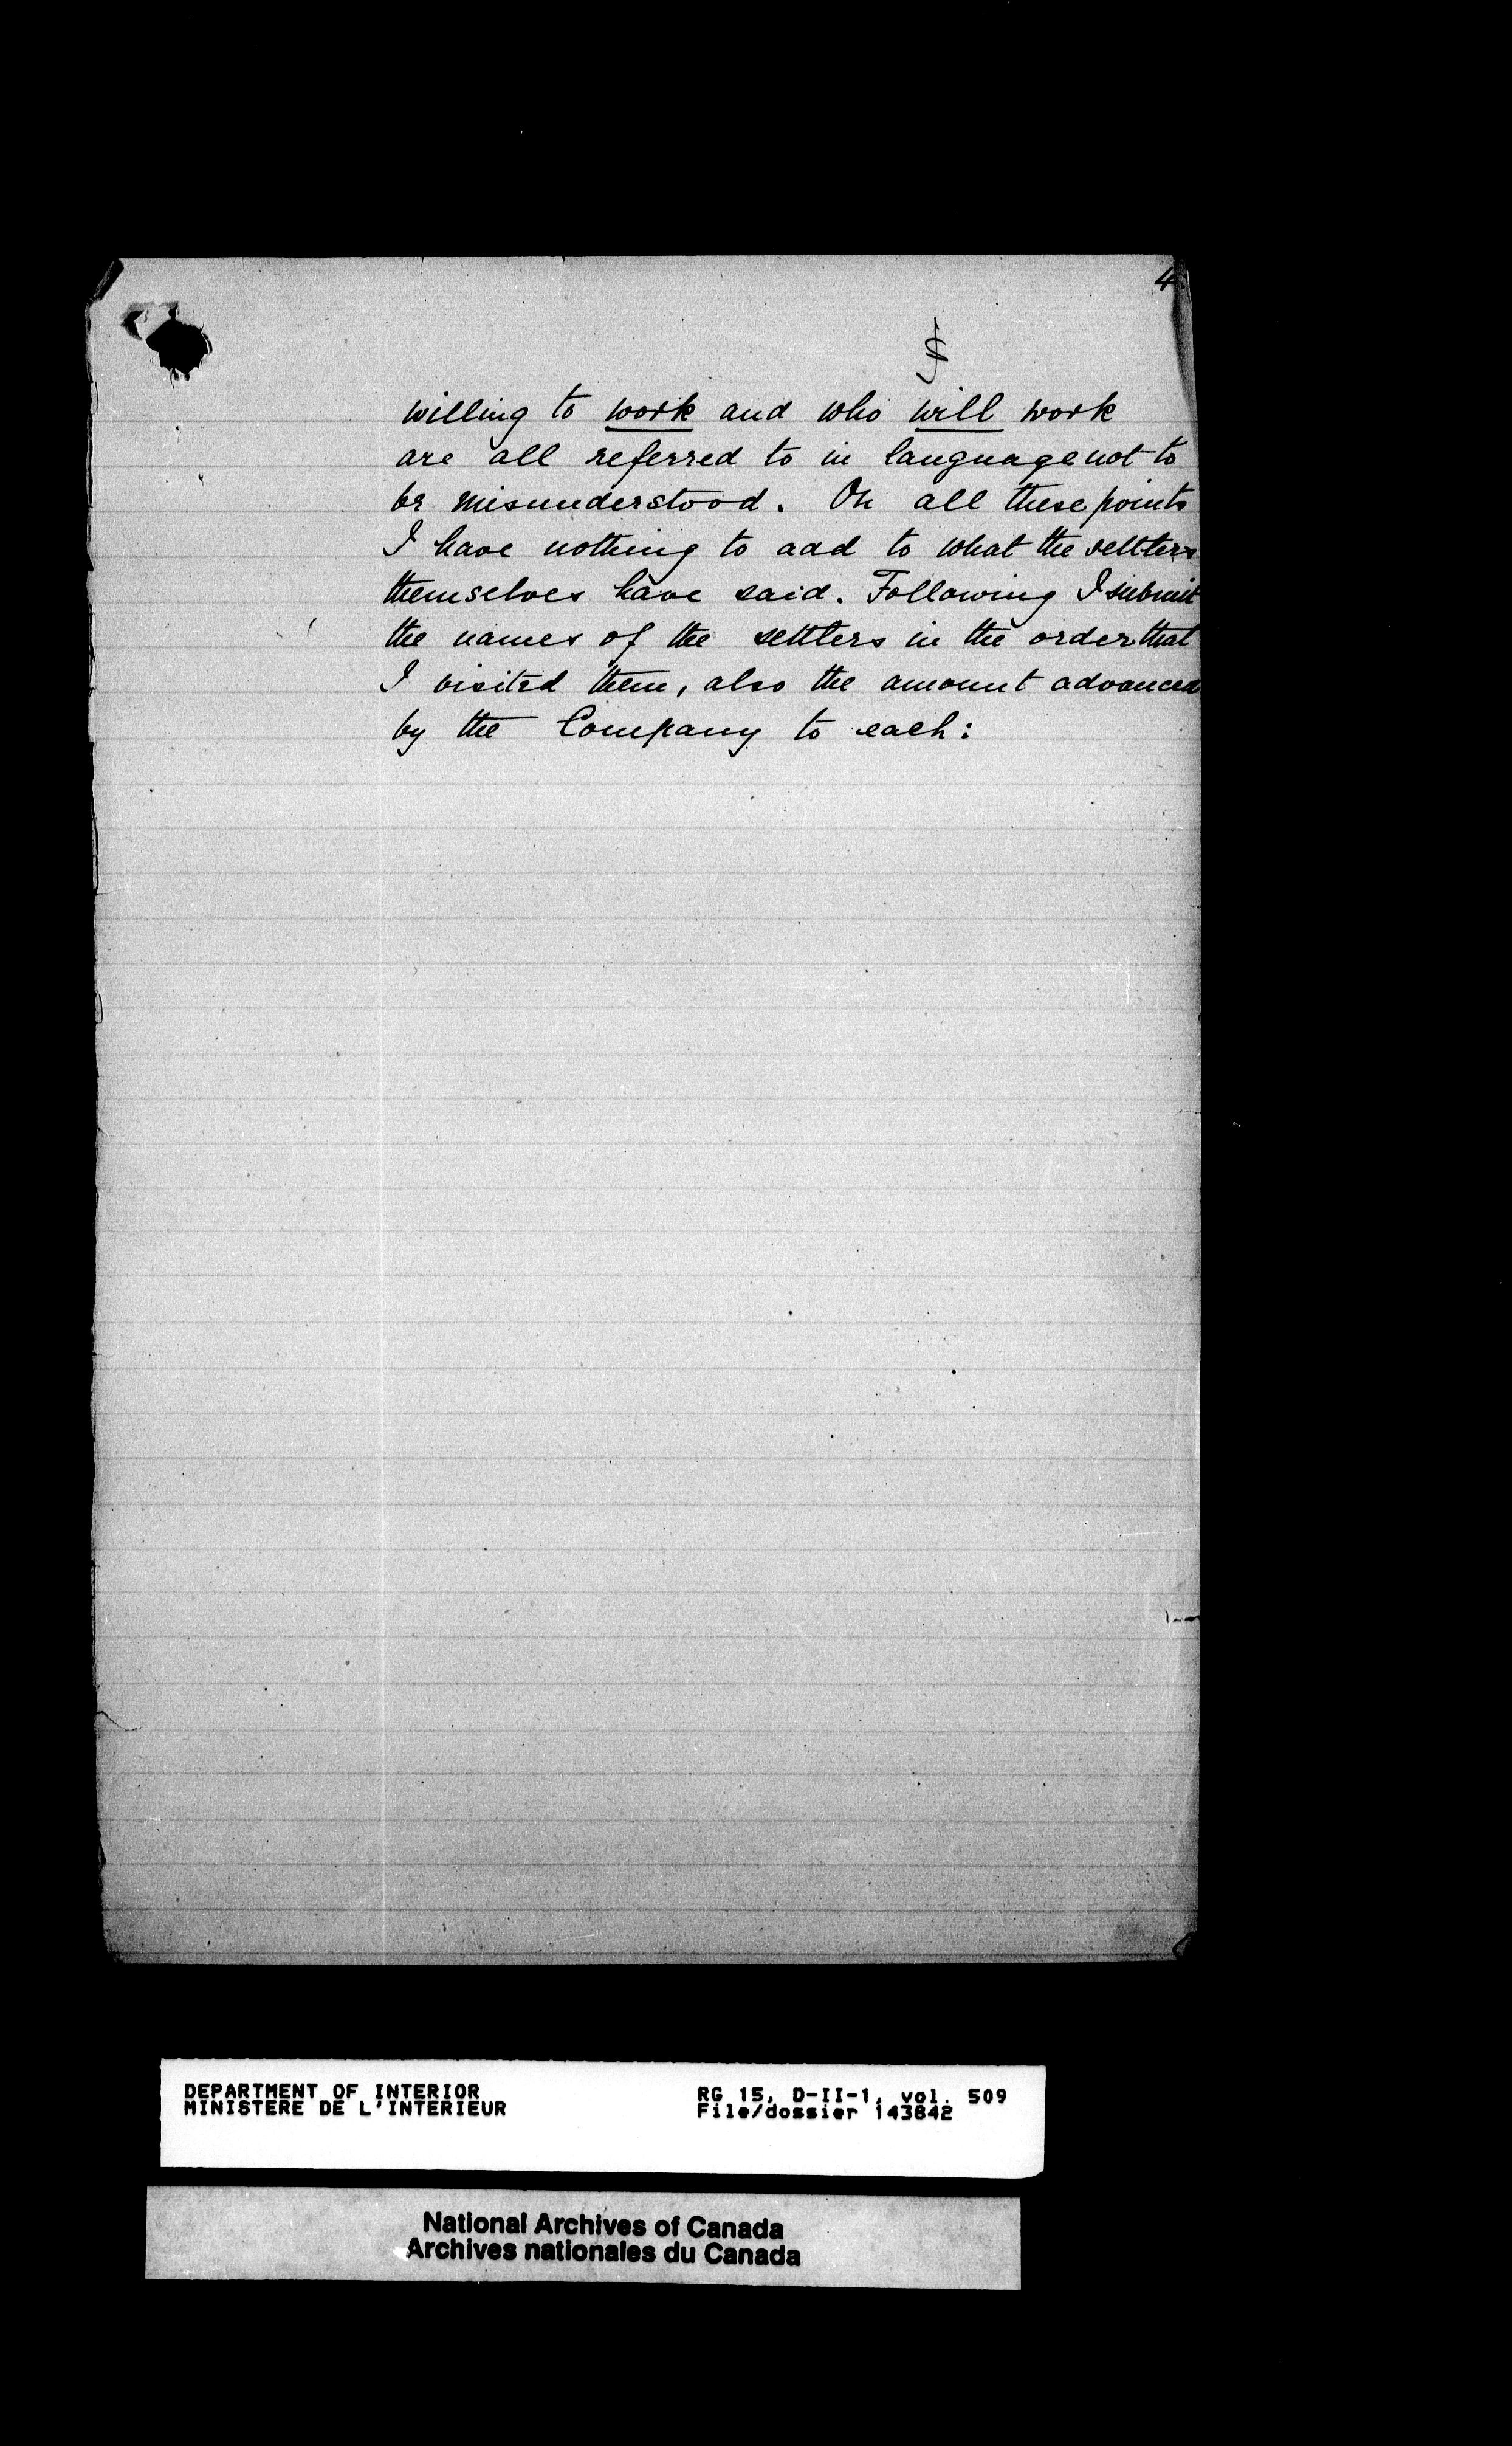 4
willing to work and who will work
are all referred to in language not to
be misunderstood. On all these points
I have nothing to add to what the settlers
themselves have said. Following I submit
the names of the settlers in the order that
I visited them, also the amount advanced
by the Company to each:
DEPARTMENT OF INTERIOR
MINISTERE DE L'INTERIEUR
RG 15, D-II-1, vol. 509
File/dossier 143842
National Archives of Canada
Archives nationales du Canada